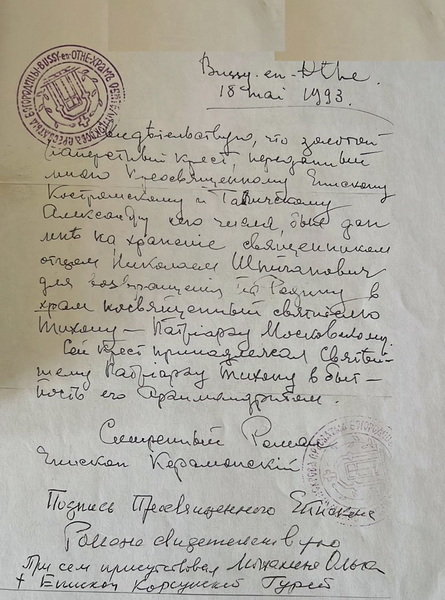 Bussy-en-Othe.
18 mai 1993.
Свидѣтельствую, что золотой
наперстный крест, переданный
мною Преосвященному Епископу
Костромскому и Галичскому
Александру сего числа, был дан
мнѣ на храненіе священником
отцом Николаем Шпичановичем
для возвращенія на Родину в
храм посвященный святителю
Тихону — Патріарху Московскому.
Сей крест принадлежал Святѣй-
шему Патріарху Тихону в быт-
ность его Архимандритом.
Смиренный Роман
Епископ Керамонскій
Подпись Преосвященного Епископа
Романа свидетельствую
При сем присутствовал Ольга
+ Епископ Корсунский Гурий